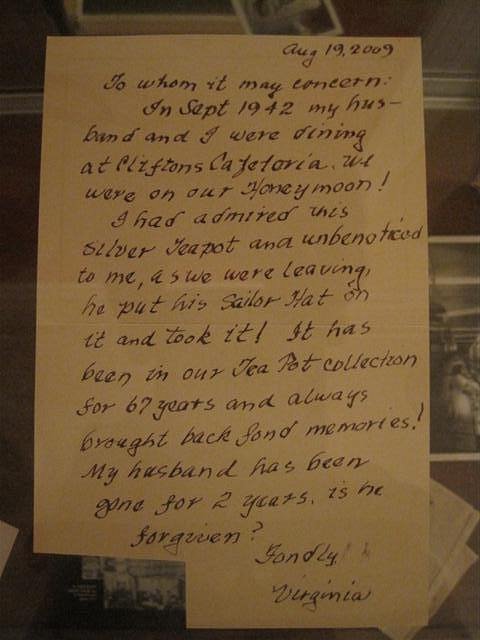 Aug 19, 2009
To whom it may concern:
In Sept 1942 my hus-
band and I were dining
at Cliftons Cafetoria. We
were on our Honeymoon!
I had admired this
Silver Teapot and unbenoticed
to me, as we were leaving,
he put his Sailor Hat on
it and took it! It has
been in our Tea Pot collection
for 67 years and always
brought back fond memories!
My husband has been
gone for 2 years. is he
forgiven?
Fondly
Virginia